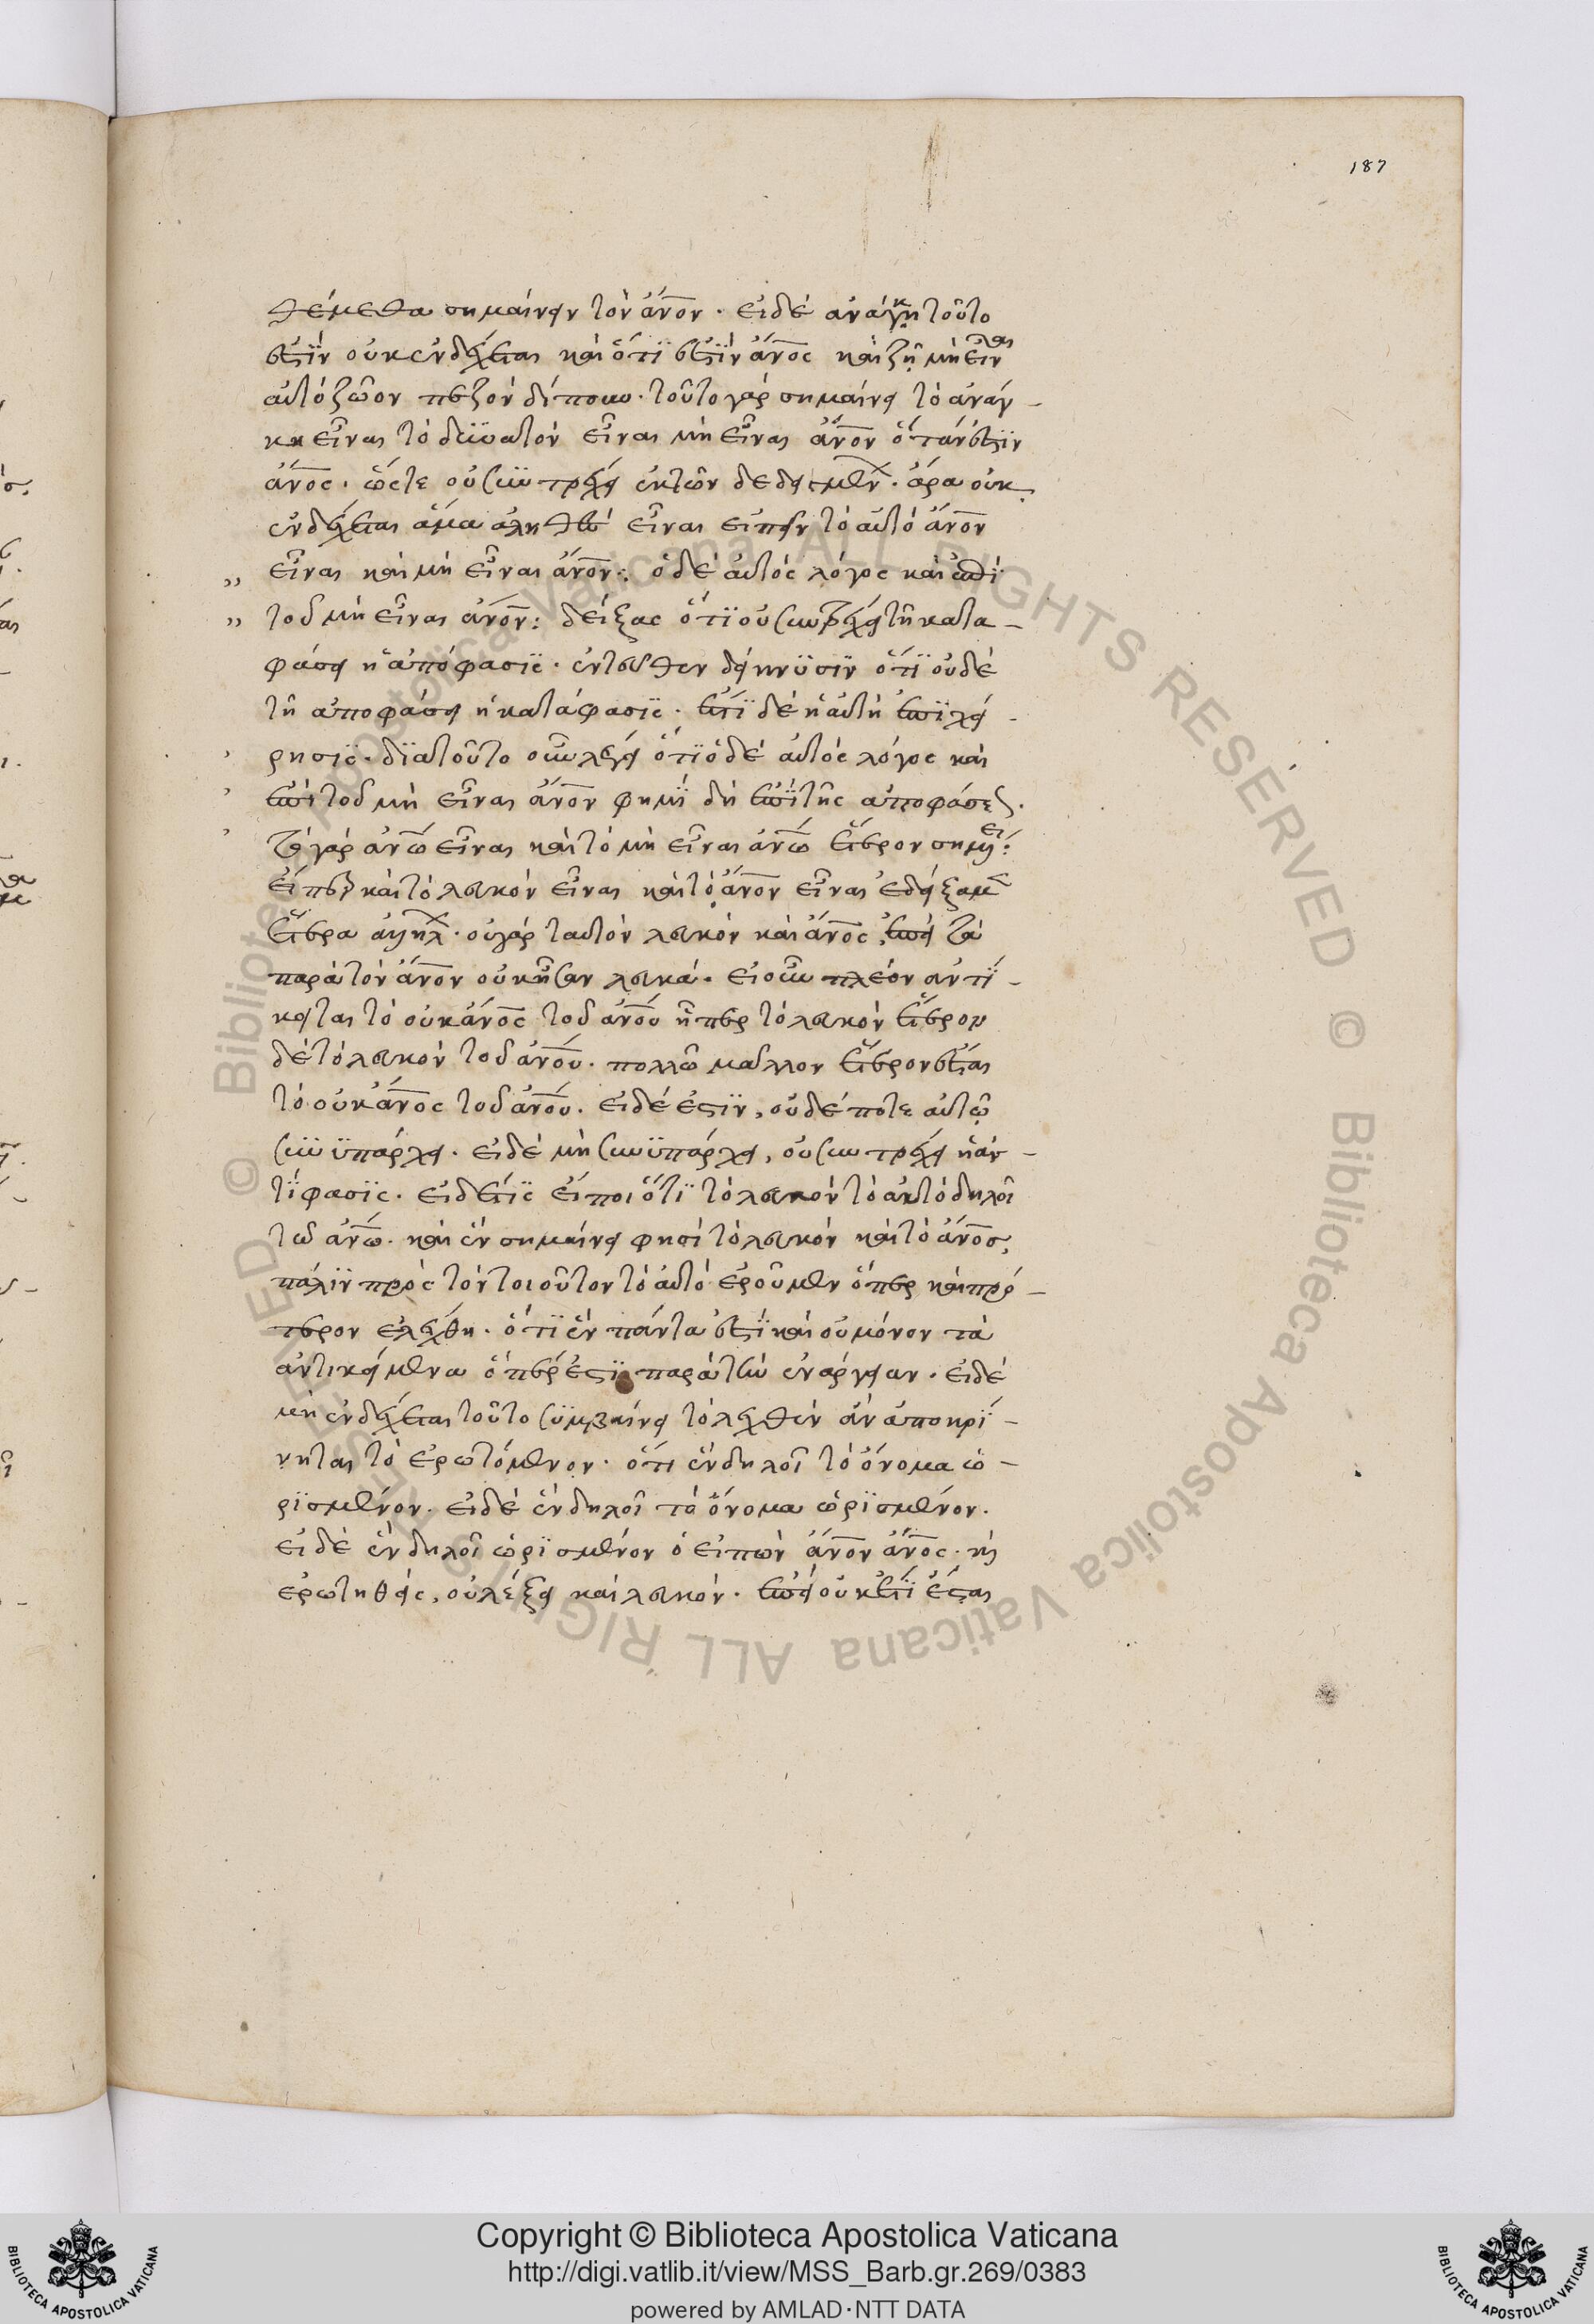 187
θέμεθα σημαίνειν τὸν ἄνον. εἰ δὲ ἀνάγκη τοῦτο
ἐστὶν οὐκ ἐνδέχεται καὶ ὅτι ἐστὶν ἄνος καὶ ζῆ μὴ εἶναι
αὐτὸ ζῶον πεζὸν δίπουν. τοῦτο γὰρ σημαίνει τὸ ἀνάγ-
κη εἶναι τὸ δυνατὸν εἶναι μὴ εἶναι ἄνον ὅταν ἐστὶν
ἄνος. ὥστε οὐ συντρέχει ἐκ τῶν δεδειγμένων. ἄρα οὐκ
ἐνδέχεται ἅμα ἀληθὲς εἶναι εἰπεῖν τὸ αὐτὸ ἄνον
„ εἶναι καὶ μὴ εἶναι ἄνον: ὁ δὲ αὐτὸς λόγος καὶ ἐπὶ
„ τοῦ μὴ εἶναι ἄνον: δείξας ὅτι οὐ συντρέχει τῇ κατα-
φάσει ἡ ἀπόφασις. ἐντεῦθεν δείκνυσιν ὅτι οὐδὲ
τῇ ἀποφάσει ἡ κατάφασις. ἔστι δὲ ἡ αὐτὴ ἐπιχεί-
ρησις. διὰ τοῦτο οὖν λέγει ὅτι ὁ δὲ αὐτὸς λόγος καὶ
ἐπὶ τοῦ μὴ εἶναι ἄνον φημὶ δὴ ἐπὶ τῆς ἀποφάσεως.
τὸ γὰρ ἀνω εἶναι καὶ τὸ μὴ εἶναι ἀνω ἕτερον σημαίνει:
εἴπερ καὶ τὸ λευκὸν εἶναι καὶ τὸ ἄνον εἶναι ἐδείξαμεν
ἕτερα ἀλλήλων. οὐ γὰρ ταυτὸν λευκὸν καὶ ἄνος, ἐπεὶ τὰ
παρὰ τὸν ἄνον οὐκ ἦσαν λευκά. εἰ οὖν πλέον ἀντί-
κειται τὸ οὐκ ἄνος τοῦ ἀνου ἤπερ τὸ λευκὸν ἕτερον
δὲ τὸ λευκὸν τοῦ ἀνου. πολλῶ μᾶλλον ἕτερον ἔσται
τὸ οὐκ ἄνος τοῦ ἀνου. εἰ δέ ἐστιν, οὐδέποτε αὐτῷ
συνυπάρχει. εἰ δὲ μὴ συνυπάρχει, οὐ συντρέχει ἡ ἀν-
τίφασις. εἰ δέ τις εἴποι ὅτι τὸ λευκὸν τὸ αὐτὸ δηλοῖ
τῶ ἀνω. καὶ ἓν σημαίνει φησὶ τὸ λευκὸν καὶ τὸ ἄνος,
πάλιν πρὸς τὸν τοιοῦτον τὸ αὐτὸ ἐροῦμεν ὅπερ καὶ πρό-
τερον ἐλέχθη. ὅτι ἓν πάντα ἐστὶ καὶ οὐ μόνον τὰ
ἀντικείμενα ὅπερ ἐστὶ παρὰ τὴν ἐνάργειαν. εἰ δὲ
μὴ ἐνδέχεται τοῦτο συμβαίνει τὸ λεχθὲν ἂν ἀποκρί-
νηται τὸ ἐρωτόμενον. ὅτι ἓν δηλοῖ τὸ ὄνομα ὡ-
ρισμένον. εἰ δὲ ἓν δηλοῖ τὸ ὄνομα ὡρισμένον.
εἰ δὲ ἓν δηλοῖ ὡρισμένον ὁ εἰπὼν ἄνον ἄνος. καὶ
ἐρωτηθεὶς, οὐ λέξει καὶ λευκόν. ἐπεὶ οὐκέτι ἔσται
© Biblioteca Apostolica Vaticana ALL RIGHTS RESERVED © Biblioteca Apostolica Vaticana ALL RIGHTS RESERVED
Copyright © Biblioteca Apostolica Vaticana
http://digi.vatlib.it/view/MSS_Barb.gr.269/0383
powered by AMLAD·NTT DATA
BIBLIOTECA APOSTOLICA VATICANA
BIBLIOTECA APOSTOLICA VATICANA